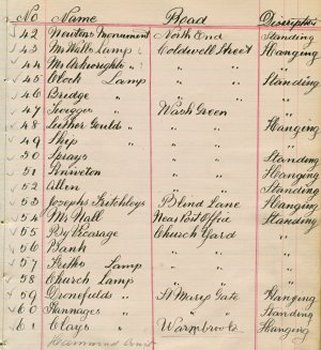 No Name Road Description
42 Newtons Monument North End Standing
43 Mr Walls Lamp Coldwell Street Hanging
44 Mr Arkwrights " " " Hanging
45 Clock Lamp " " Standing
46 Bridge " " " "
47 Twigges " Wash Green "
48 Luther Goulds " " Hanging
49 Ship " " "
50 Sprays " " Standing
51 Kniveton " " Hanging
52 Allen " " Standing
53 Josephs Fritchleys Blind Lane Hanging
54 Mr Wall Near Post Office Standing
55 By Vicarage Church Yard "
56 Bank " "
57 Lamp " "
58 Church Lamp " "
59 Dronefields " St Marys Gate Hanging
60 Hannages " " Standing
61 Clays " Warmbrook Hanging